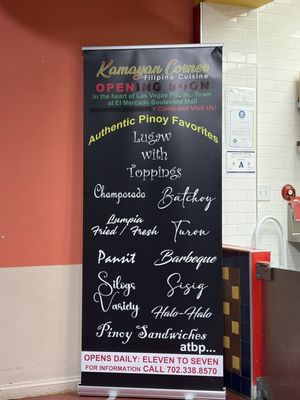 Kamayan Corner
Filipino Cuisine
OPENING SOON
in the heart of Las Vegas Filipino Town
at El Mercado Boulevard Mall!
> Come and Visit Us!
Authentic Pinoy Favorites
Lugaw
with
Toppings
Champorado Batchoy
Lumpia
Fried / Fresh Turon
Pansit Barbeque
Silogs
Variety Sisig
Halo-Halo
Pinoy Sandwiches
atbp...
OPENS DAILY: ELEVEN TO SEVEN
FOR INFORMATION CALL 702.338.8570
A